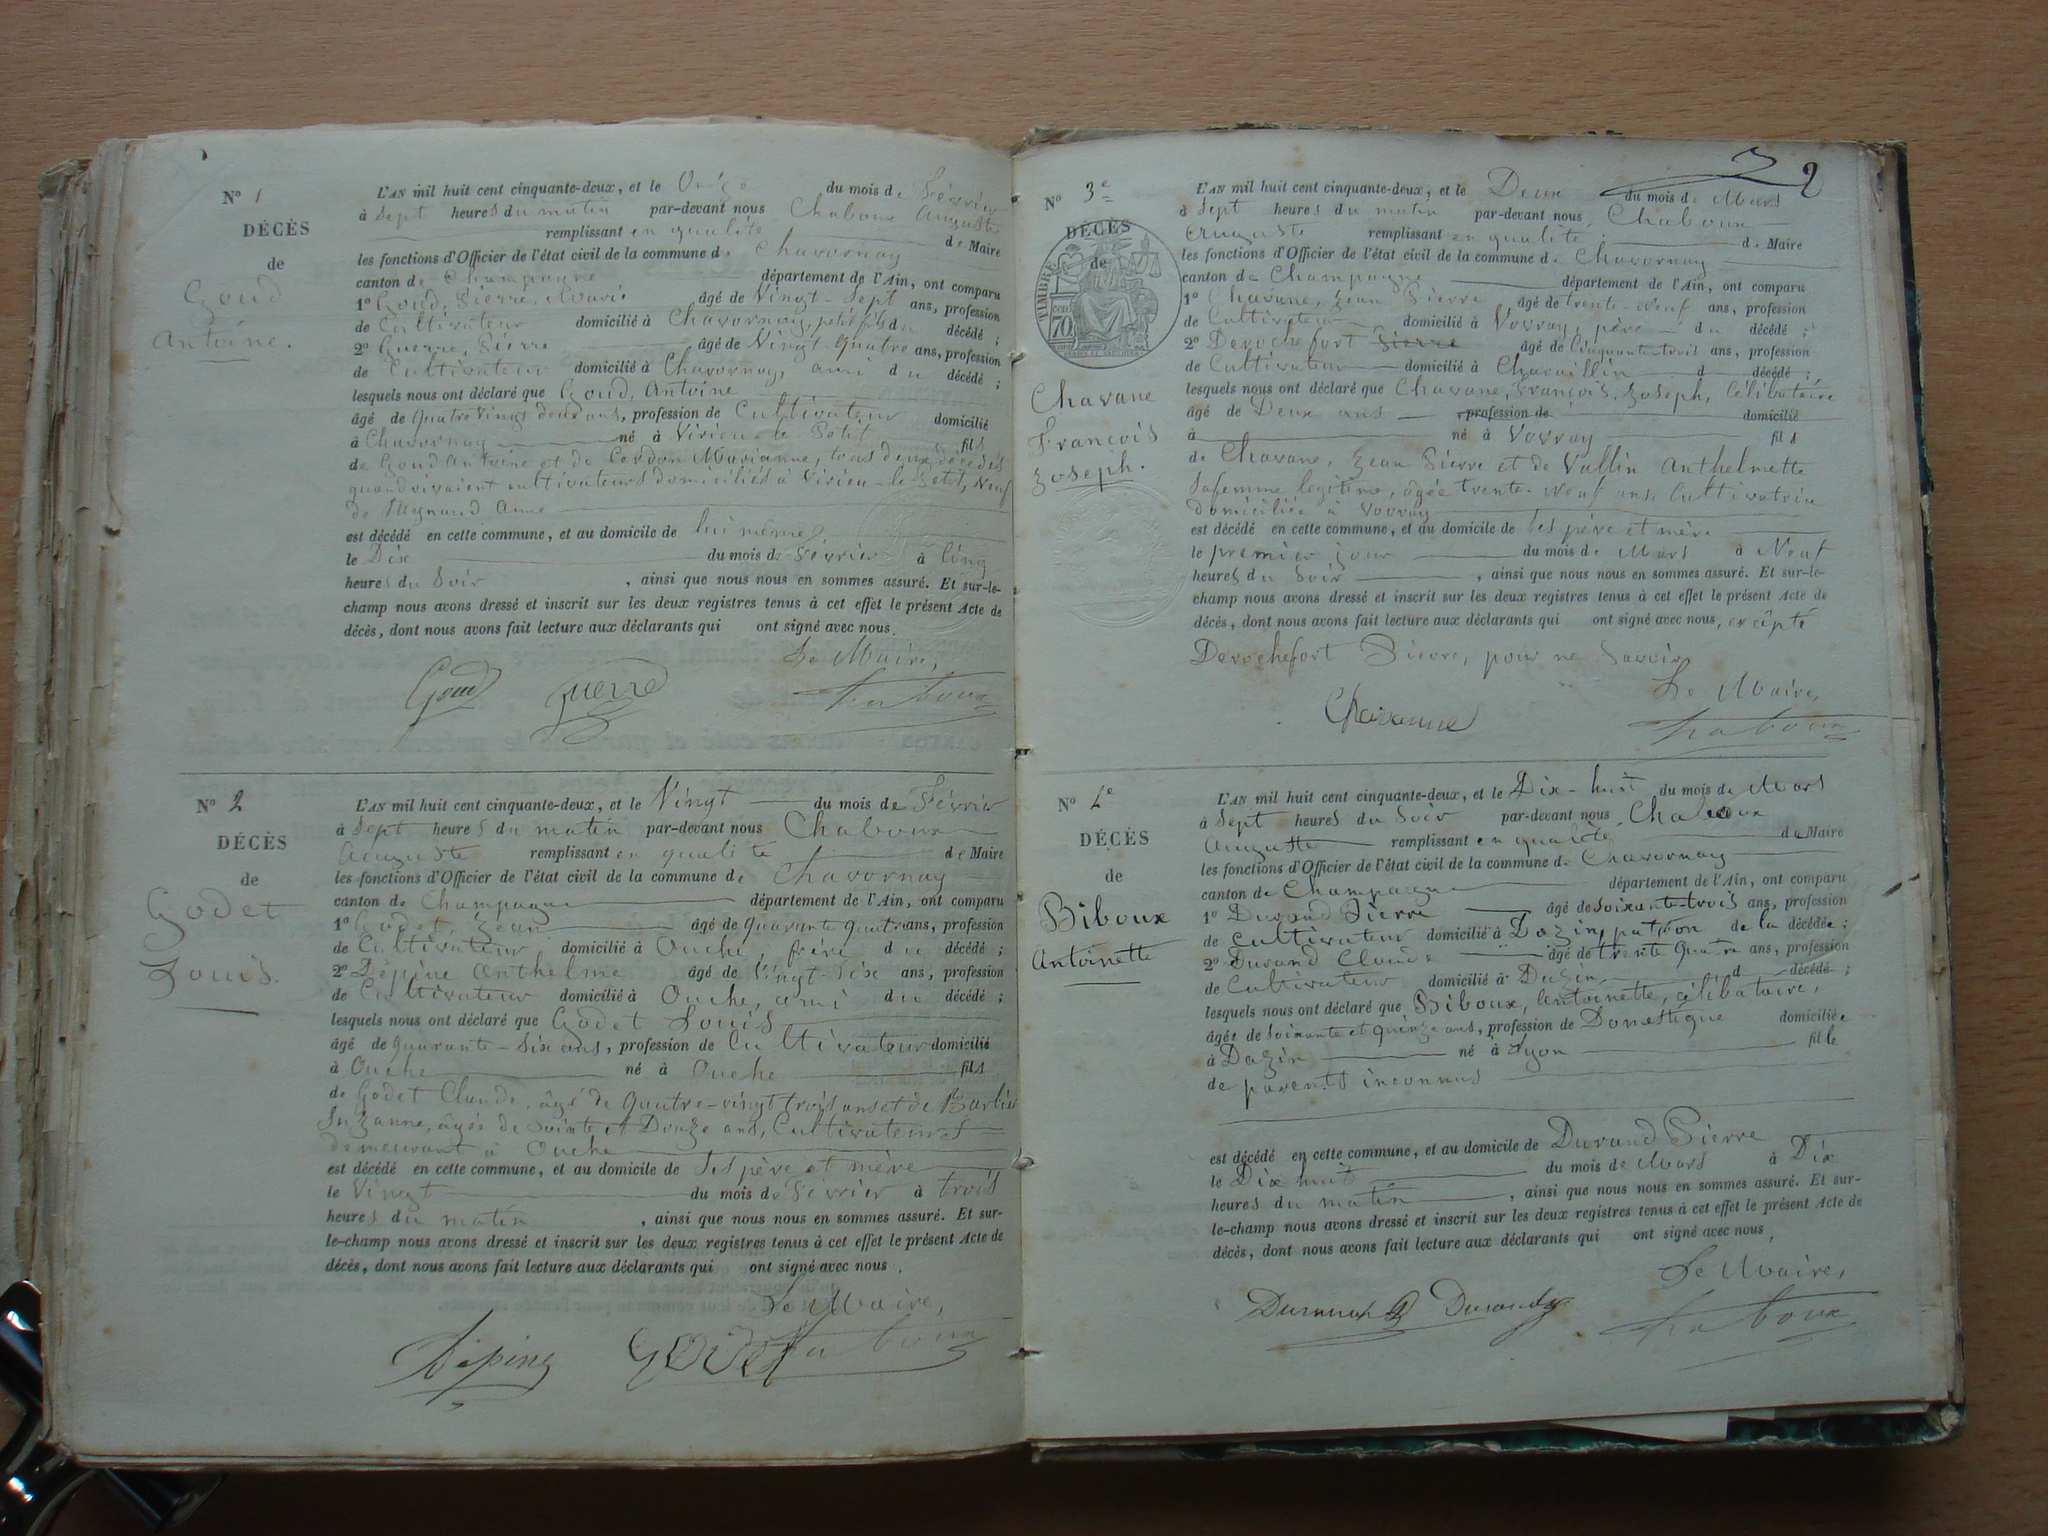 N° 1
DÉCÈS
de
Goud
Antoine.
L'AN mil huit cent cinquante-deux, et le Onze du mois de Février
à Sept heures du matin par-devant nous Chaboux Auguste
remplissant en qualité de Maire
les fonctions d'Officier de l'état civil de la commune de Chavornay
canton de Champagne département de l'Ain, ont comparu
1° Goud, Pierre, Marie âgé de Vingt-Sept ans, profession
de Cultivateur domicilié à Chavornay, petit fils du décédé ;
2° Guerre, Pierre âgé de Vingt-Quatre ans, profession
de Cultivateur domicilié à Chavornay, ami du décédé ;
lesquels nous ont déclaré que Goud, Antoine
âgé de Quatre Vingt deux ans, profession de Cultivateur domicilié
à Chavornay né à Virieu-le Petit fils
de Goud Antoine et de Cerdon Marianne, tous deux décédés
quand vivaient cultivateurs domiciliés à Virieu-le-Petit, Veuf
de Meynard Anne
est décédé en cette commune, et au domicile de lui même
le Dix du mois de Février à Cinq
heures du Soir , ainsi que nous nous en sommes assuré. Et sur-le-
champ nous avons dressé et inscrit sur les deux registres tenus à cet effet le présent Acte de
décès, dont nous avons fait lecture aux déclarants qui ont signé avec nous.
Le Maire,
Goud Guerre Chaboux
N° 2
DÉCÈS
de
Godet
Louis.
L'AN mil huit cent cinquante-deux, et le Vingt du mois de Février
à Sept heures du matin par-devant nous Chaboux
Auguste remplissant en qualité de Maire
les fonctions d'Officier de l'état civil de la commune de Chavornay
canton de Champagne département de l'Ain, ont comparu
1° Godet, Jean âgé de Quarante Quatre ans, profession
de Cultivateur domicilié à Ouche, frère du décédé ;
2° Dépine Anthelme âgé de Vingt-Six ans, profession
de Cultivateur domicilié à Ouche, ami du décédé ;
lesquels nous ont déclaré que Godet Louis
âgé de Quarante-Six ans, profession de Cultivateur domicilié
à Ouche né à Ouche fils
de Godet Claude, âgé de Quatre-vingt trois ans et de Barlie
Suzanne, âgés de Soixante et Douze ans, Cultivateurs
demeurant à Ouche
est décédé en cette commune, et au domicile de Ses père et mère
le Vingt du mois de Février à trois
heures du matin , ainsi que nous nous en sommes assuré. Et sur-
le-champ nous avons dressé et inscrit sur les deux registres tenus à cet effet le présent Acte de
décès, dont nous avons fait lecture aux déclarants qui ont signé avec nous .
Le Maire,
Dépine Godet Chaboux
2
N° 3e
DÉCÈS
de
TIMBRE
70
Chavane
François
Joseph.
L'AN mil huit cent cinquante-deux, et le Deux du mois de Mars
à Sept heures du matin par-devant nous Chaboux
Auguste remplissant en qualité de Maire
les fonctions d'Officier de l'état civil de la commune de Chavornay
canton de Champagne département de l'Ain, ont comparu
1° Chavane, Jean Pierre âgé de trente-neuf ans, profession
de Cultivateur domicilié à Vovray, père du décédé ;
2° Derochefort Pierre âgé de Cinquante trois ans, profession
de Cultivateur domicilié à Chavaillin d décédé ;
lesquels nous ont déclaré que Chavane, François, Joseph, Célibataire
âgé de Deux ans profession de domicilié
à né à Vovray fils
de Chavane, Jean Pierre et de Vallin Anthelmette
Sa femme légitime, âgée trente-neuf ans, Cultivatrice
domiciliée à Vovray
est décédé en cette commune, et au domicile de Ses père et mère
le premier jour du mois de Mars à Neuf
heures du Soir , ainsi que nous nous en sommes assuré. Et sur-le-
champ nous avons dressé et inscrit sur les deux registres tenus à cet effet le présent Acte de
décès, dont nous avons fait lecture aux déclarants qui ont signé avec nous, excépté
Derochefort Pierre, pour ne Savoir
Le Maire,
Chavanne Chaboux
N° 4e
DÉCÈS
de
Biboux
Antoinette
L'AN mil huit cent cinquante-deux, et le Dix-huit du mois de Mars
à Sept heures du Soir par-devant nous Chaboux
Auguste remplissant en qualité de Maire
les fonctions d'Officier de l'état civil de la commune de Chavornay
canton de Champagne département de l'Ain, ont comparu
1° Durand Pierre âgé de soixante-trois ans, profession
de Cultivateur domicilié à Dazin, patron de la décédée ;
2° Durand Claude âgé de trente Quatre ans, profession
de Cultivateur domicilié à Dazin d décédé ;
lesquels nous ont déclaré que Biboux, Antoinette, célibataire,
âgée de Soixante et Quinze ans, profession de Domestique domiciliée
à Dazin né à Lyon fille
de parents inconnus
est décédé en cette commune, et au domicile de Durand Pierre
le Dix huit du mois de Mars à Dix
heures du matin , ainsi que nous nous en sommes assuré. Et sur-
le-champ nous avons dressé et inscrit sur les deux registres tenus à cet effet le présent Acte de
décès, dont nous avons fait lecture aux déclarants qui ont signé avec nous ,
Le Maire,
Durand Durand Chaboux